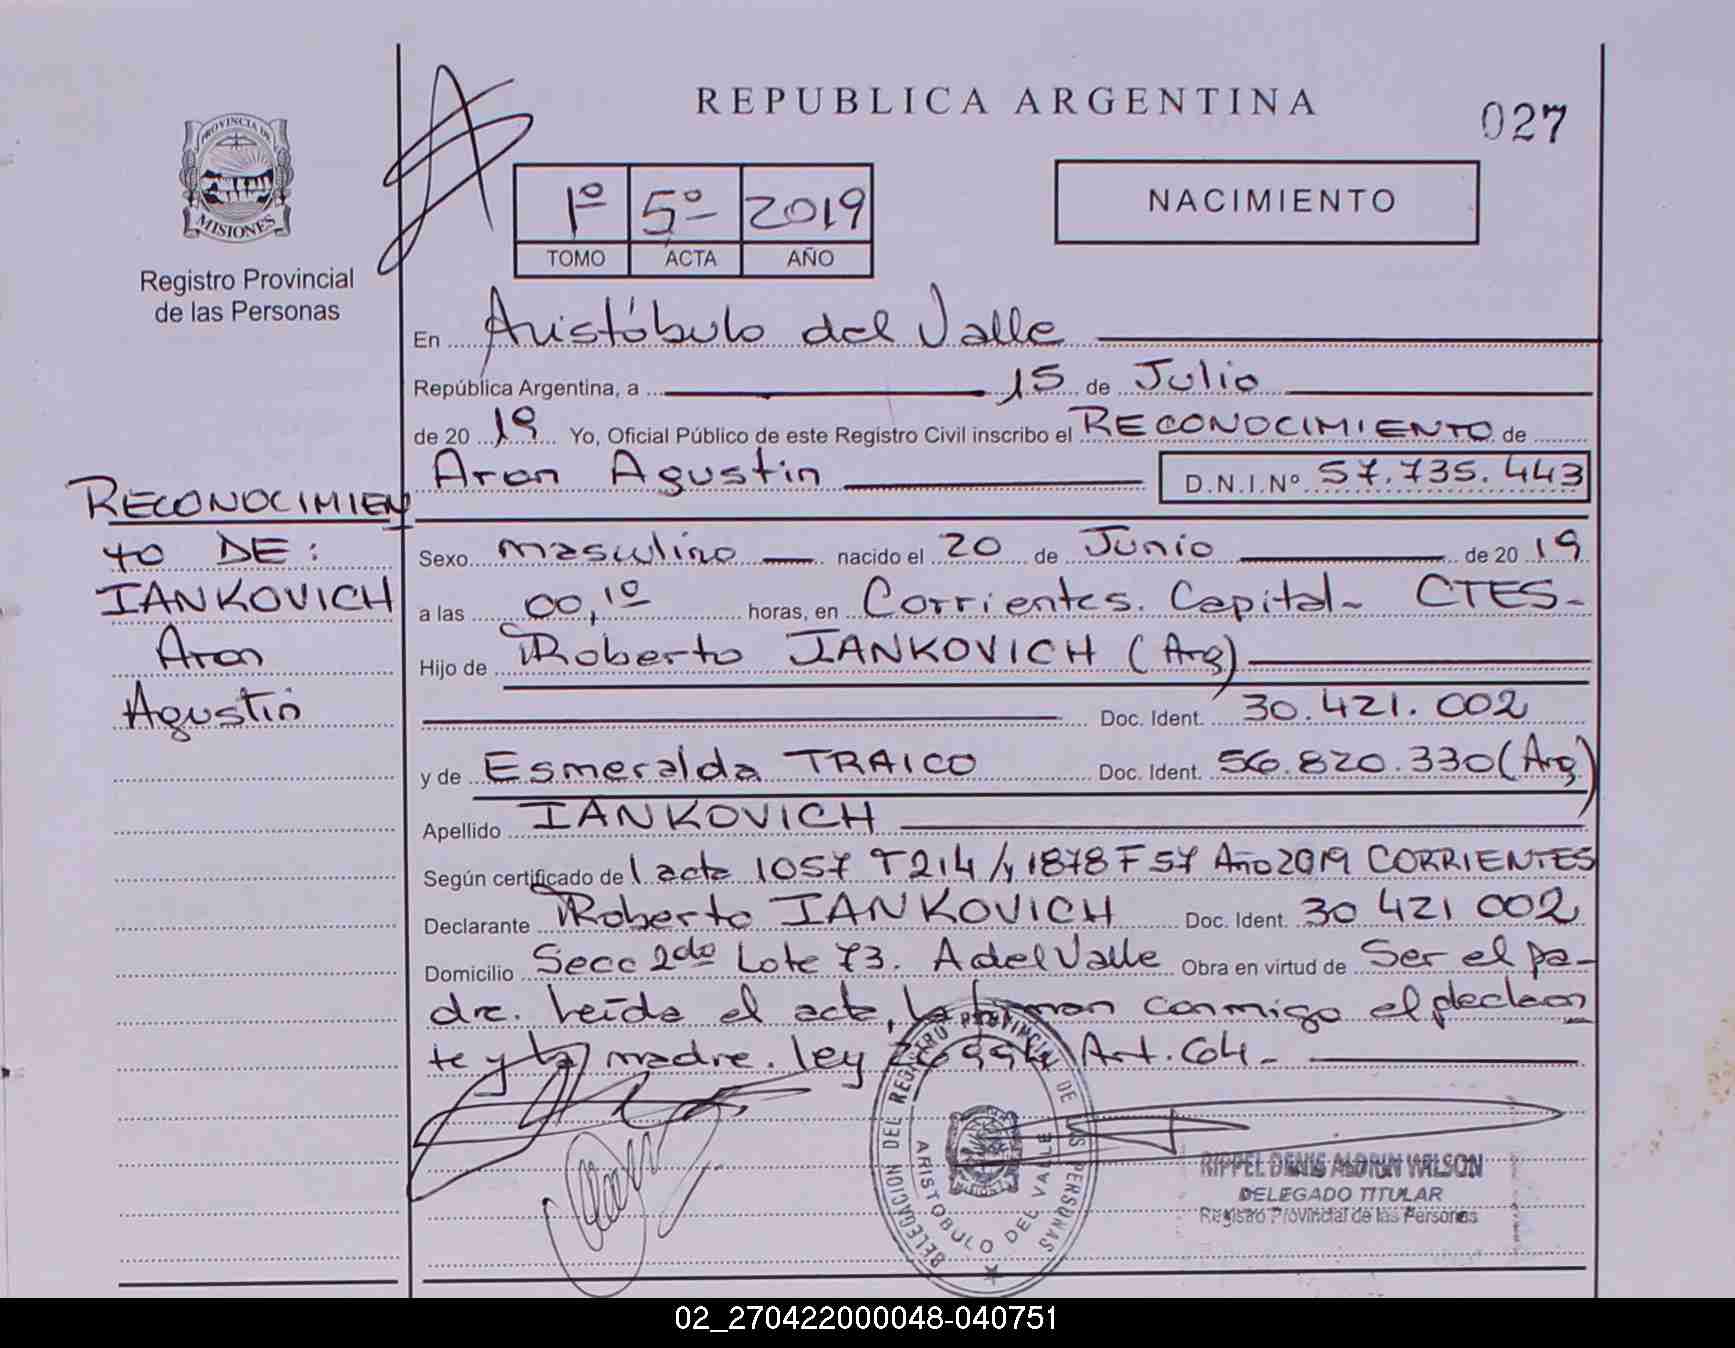 REPUBLICA ARGENTINA
027
PROVINCIA DE
MISIONES
Registro Provincial
de las Personas
1º 5º 2019
TOMO ACTA AÑO
NACIMIENTO
En Aristóbulo del Valle
República Argentina, a 15 de Julio
de 2019 Yo, Oficial Público de este Registro Civil inscribo el RECONOCIMIENTO de
Aron Agustin D.N.I.Nº 57.735.443
RECONOCIMIEN
TO DE:
IANKOVICH
Aron
Agustin
Sexo masculino nacido el 20 de Junio de 2019
a las 00,10 horas, en Corrientes. Capital- CTES-
Hijo de Roberto IANKOVICH (Arg)
Doc. Ident. 30.421.002
y de Esmeralda TRAICO Doc. Ident. 56.820.330 (Arg)
Apellido IANKOVICH
Según certificado de acta 1057 T214 1878 F57 Año 2019 CORRIENTES
Declarante Roberto IANKOVICH Doc. Ident. 30 421 002
Domicilio Secc 2da Lote 73. A del Valle Obra en virtud de Ser el pa-
dre. Leída el acta, la firman conmigo el declaran
te y la madre. ley 26994 Art. 64-
DELEGACION DEL REGISTRO PROVINCIAL DE LAS PERSONAS
ARISTOBULO DEL VALLE
RIPPEL DENIS ALDRIN WILSON
DELEGADO TITULAR
Registro Provincial de las Personas
02_270422000048-040751